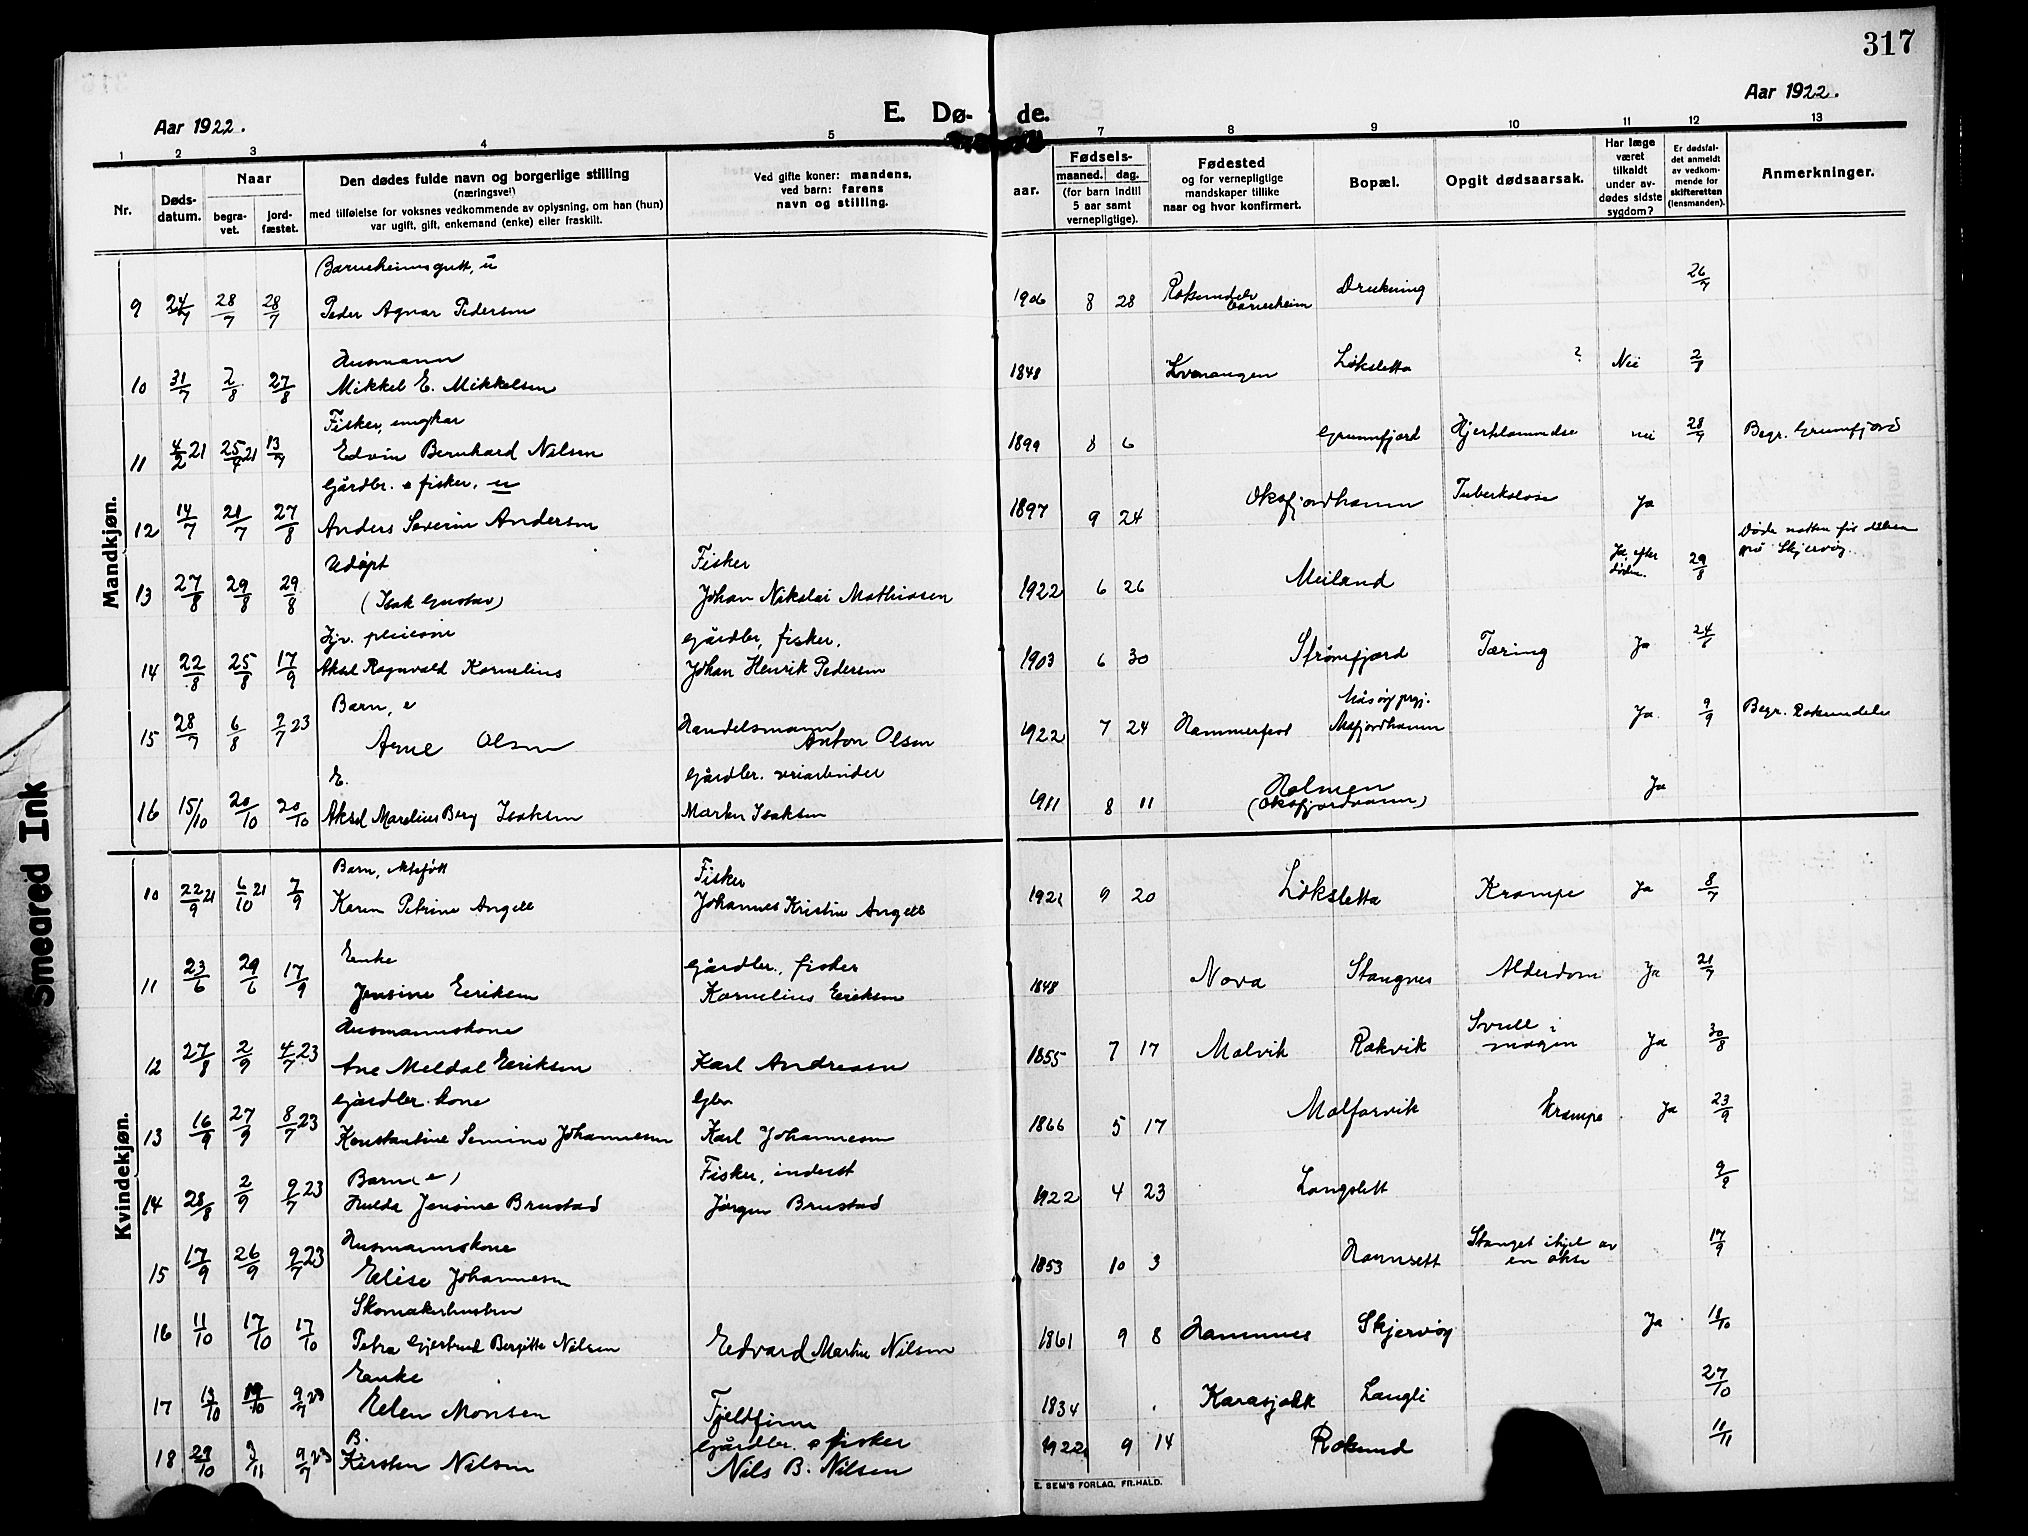 317
Aar 1922.
E. Dø- de.
Aar 1922.
1 2 3 4 5 7 8 9 10 11 12 13
Nr.
Døds-
datum.
Naar
begra-
vet.
jord-
fæstet.
Den dødes fulde navn og borgerlige stilling
(næringsvei)
med tilføielse for voksnes vedkommende av oplysning, om han (hun)
var ugift, gift, enkemand (enke) eller fraskilt.
Ved gifte koner: mandens,
ved barn: farens
navn og stilling.
aar.
Fødsels-
maaned. dag.
(for barn indtil
5 aar samt
vernepligtige).
Fødested
og for vernepligtige
mandskaper tillike
naar og hvor konfirmert.
Bopæl.
Opgit dødsaarsak.
Har læge
været
tilkaldt
under av-
dødes sidste
sygdom?
Er dødsfal-
det anmeldt
av vedkom-
mende for
skifteretten
(lensmanden).
Anmerkninger.
Mandkjøn.
Barneheimsgutt, u
9 24/7 28/7 28/7 Peder Agnar Pedersen 1906 8 28 barneheim Drukning 26/7
Husmann
10 31/7 2/8 27/8 Mikkel E. Mikkelsen 1848 Kvænangen Løksletta ? Nei
Fisker, ungkar
11 4/2 21 25/4 21 13/7 Edvin Bernhard Nilsen 1899 8 6 Grunnfjord nei 28/7 Begr. Grunnfjord
Gårdbr. o fisker, u
12 14/7 21/7 27/8 Anders Severin Andersen 1897 9 24 Oksfjordhamn Tuberkulose Ja
Udøpt Fisker
13 27/8 29/8 29/8 (Isak Gustav) Johan Nikolai Mathiasen 1922 6 26 Meiland Ja, efter døden. 29/8 Døde natten før dåpen på Skjervøy.
pleiesøn Gårdbr, fisker.
14 22/8 25/8 17/9 Aksel Ragnvald Kornelius Johan Henrik Pedersen 1903 6 30 Strømfjord Tæring Ja 24/8
Barn, e Handelsmann Måsøy prgj.
15 28/7 6/8 9/7 23 Arne Olsen Anton Olsen 1922 7 24 Hammerfest Ja 9/9 Begr. Roksundelv
E. Gårdbr. veiarbeider
16 15/10 20/10 20/10 Aksel Marelius Berg Isaksen Martin Isaksen 1911 8 11 Holmen
(Oksfjordvann) Ja
Kvindekjøn.
Barn, ektefødt Fisker
10 22/9 21 6/10 21 7/9 Karen Petrine Angell Johannes Kristin Angell 1921 9 20 Løksletta Krampe Ja 8/7
Enke Gårdbr., fisker
11 23/6 29/6 17/9 Jensine Eriksen Kornelius Eriksen 1848 Stangnes Alderdom Ja 21/7
Husmannskone
12 27/8 2/9 4/7 23 Ane Meldal Eriksen Karl Andreasen 1855 7 17 Malvik Rakvik Svull i magen Ja 30/8
Gårdbr. kone Gbr
13 16/9 27/9 8/7 23 Konstantine Semine Johannesen Karl Johannesen 1866 5 17 Molforvik Krampe Ja 23/9
Barn (e) Fisker, inderst
14 28/8 2/9 9/7 23 Hulda Jensine Brustad Jørgen Brustad 1922 4 23 Langslett 9/9
Husmannskone
15 17/9 26/9 9/7 23 Elise Johannesen 1853 10 3 Stanget ihjel av en okse 17/9
Skomakerhustru
16 11/10 17/10 17/10 Petra Gjertrud Bergitte Nilsen Edvard Martin Nilsen 1861 9 8 Hamnnes Skjervøy Ja 18/10
Enke
17 13/10 19/10 9/7 23 Elen Monsen Fjeldfinne 1834 Karasjokk Langli 27/10
B. Gårdbr. o fisker
18 29/10 3/11 9/7 23 Kirsten Nilsen Nils B. Nilsen 1922 9 14 Roksund 11/11
E. SEM'S FORLAG, FR.HALD.
Smeared Ink